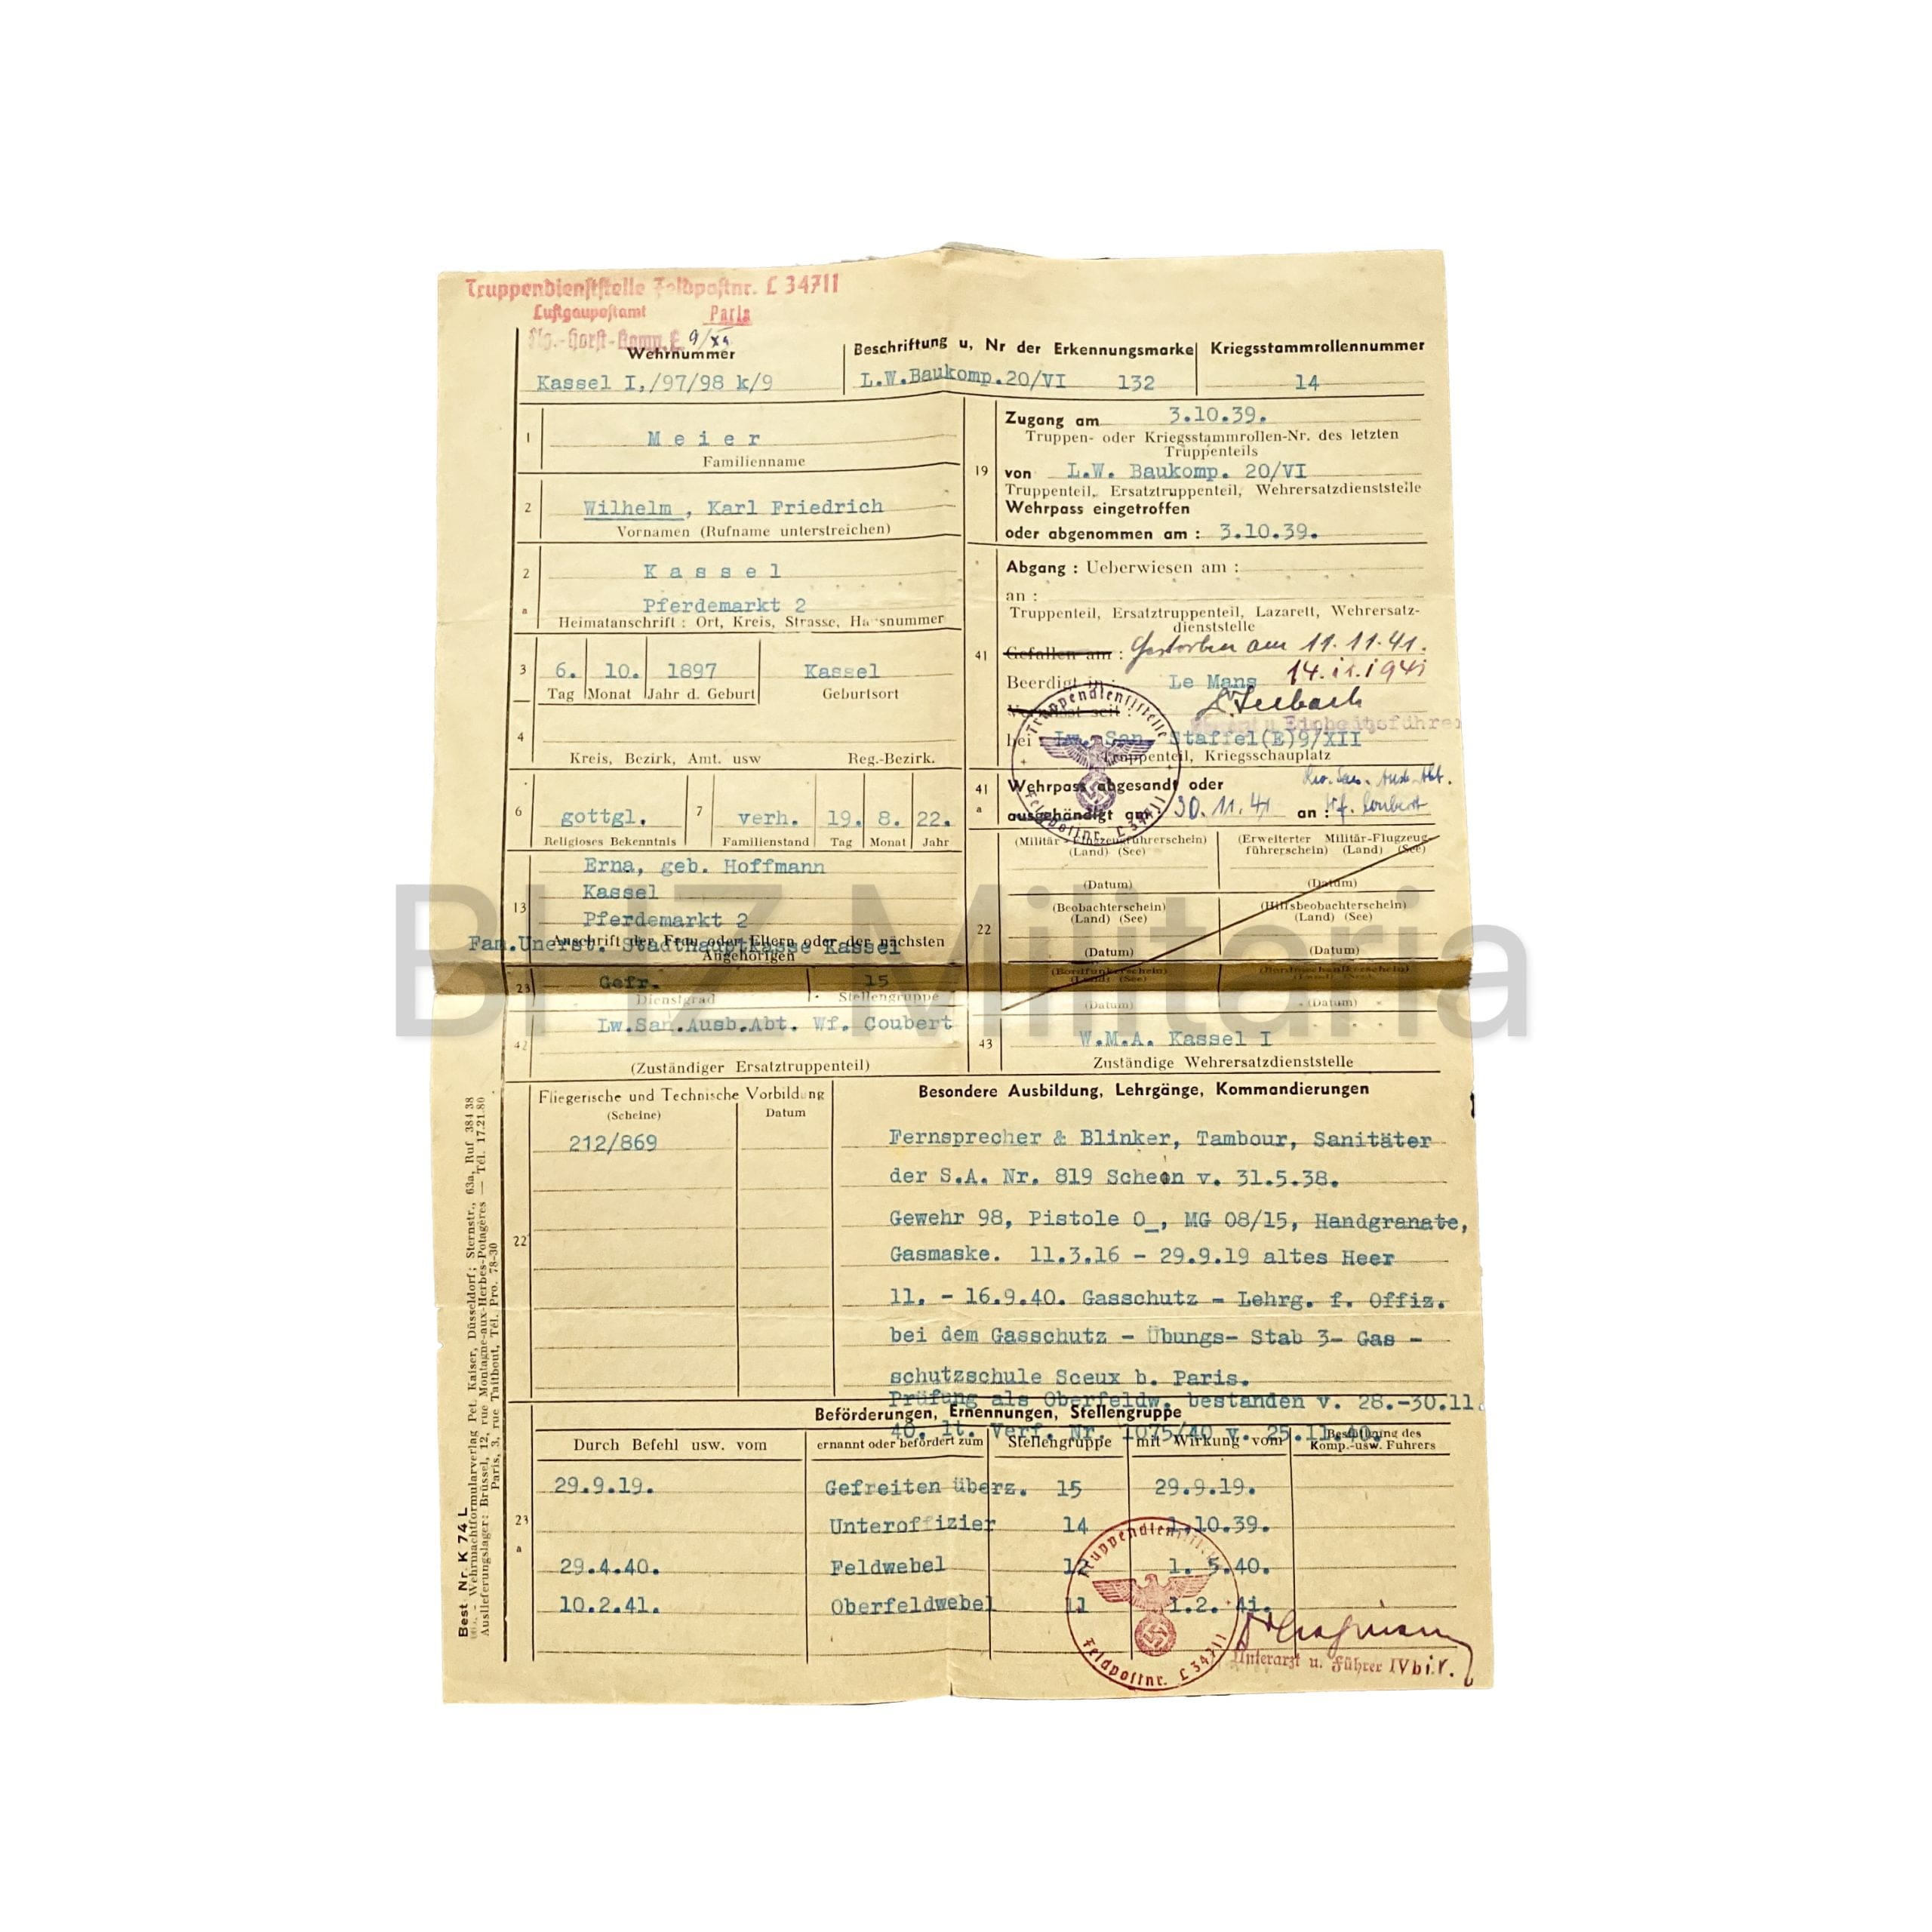 Truppendienststelle Feldpostnr. L 34711
Luftgaupostamt Paris
Flg.-Horst-Komp. E 9/XI
Wehrnummer
Kassel I./97/98 k/9
Beschriftung u, Nr der Erkennungsmarke
L.W.Baukomp.20/VI 132
Kriegsstammrollennummer
14
1
Meier
Familienname
2
Wilhelm , Karl Friedrich
Vornamen (Rufname unterstreichen)
2
a
Kassel
Pferdemarkt 2
Heimatanschrift : Ort, Kreis, Strasse, Ha snummer
3
6. 10. 1897 Kassel
Tag Monat Jahr d. Geburt Geburtsort
4
Kreis, Bezirk, Amt. usw Reg.-Bezirk.
6 gottgl. 7 verh. 19. 8. 22.
Religioses Bekenntnis Familienstand Tag Monat Jahr
13
Erna, geb. Hoffmann
Kassel
Pferdemarkt 2
Anschrift der Frau oder Eltern oder der nächsten
Fam.Unerst. Stadthauptkasse Kassel
Angehörigen
23 Gefr. 15
Dienstgrad Stellengruppe
42
Lw.San.Ausb.Abt. Wf. Coubert
(Zuständiger Ersatztruppenteil)
19
Zugang am 3.10.39.
Truppen- oder Kriegsstammrollen-Nr. des letzten
Truppenteils
von L.W. Baukomp. 20/VI
Truppenteil, Ersatztruppenteil, Wehrersatzdienststelle
Wehrpass eingetroffen
oder abgenommen am : 3.10.39.
41
Abgang : Ueberwiesen am :
an :
Truppenteil, Ersatztruppenteil, Lazarett, Wehrersatz-
dienststelle
Gefallen am : Gestorben am 11.11.41.
Beerdigt in : Le Mans 14.11.1941
Vermisst seit :
bei Lw. San. Staffel(E)9/XII
Truppenteil, Kriegsschauplatz
Truppendienststelle
Feldpostnr. L 34711
41
a
Wehrpass abgesandt oder
ausgehändigt am : 30.11.41 an : Wf. Coubert
22
(Militär - Flugzeugführerschein)
(Land) (See)
(Datum)
(Erweiterter Militär-Flugzeug-
führerschein) (Land) (See)
(Datum)
(Beobachterschein)
(Land) (See)
(Datum)
(Hilfsbeobachterschein)
(Land) (See)
(Datum)
(Bordfunkerschein)
(Land) (See)
(Datum)
(Bordmechanikerschein)
(Land) (See)
(Datum)
43
W.M.A. Kassel I
Zuständige Wehrersatzdienststelle
BHZ Militaria
22
Fliegerische und Technische Vorbildung
(Scheine) Datum
212/869
Besondere Ausbildung, Lehrgänge, Kommandierungen
Fernsprecher & Blinker, Tambour, Sanitäter
der S.A. Nr. 819 Scheen v. 31.5.38.
Gewehr 98, Pistole O_, MG 08/15, Handgranate,
Gasmaske. 11.3.16 - 29.9.19 altes Heer
11. - 16.9.40. Gasschutz - Lehrg. f. Offiz.
bei dem Gasschutz - Übungs- Stab 3- Gas -
schutzschule Sceux b. Paris.
Prüfung als Oberfeldw. bestanden v. 28.-30.11.
40. lt. Verf. Nr. 1075/40 v. 25.11.40.
Beförderungen, Ernennungen, Stellengruppe
23
a
Durch Befehl usw. vom ernannt oder befördert zum Stellengruppe mit Wirkung vom Bestätigung des
Komp.-usw. Fuhrers
29.9.19. Gefreiten überz. 15 29.9.19.
Unteroffizier 14 1.10.39.
29.4.40. Feldwebel 12 1. 5.40.
10.2.41. Oberfeldwebel 11 1.2. 41.
Truppendienststelle
Feldpostnr. L 34711
Unterarzt u. Führer IVb i.V.
Best. Nr. K 74 L
Wehrmachtformularverlag Pet. Kaiser, Düsseldorf; Sternstr., 63a, Ruf 384 38
Auslieferungslager: Brüssel, 12, rue Montagne-aux-Herbes-Potagères — Tél. 17.21.80
Paris, 3, rue Taitbout, Tél. Pro. 78-30